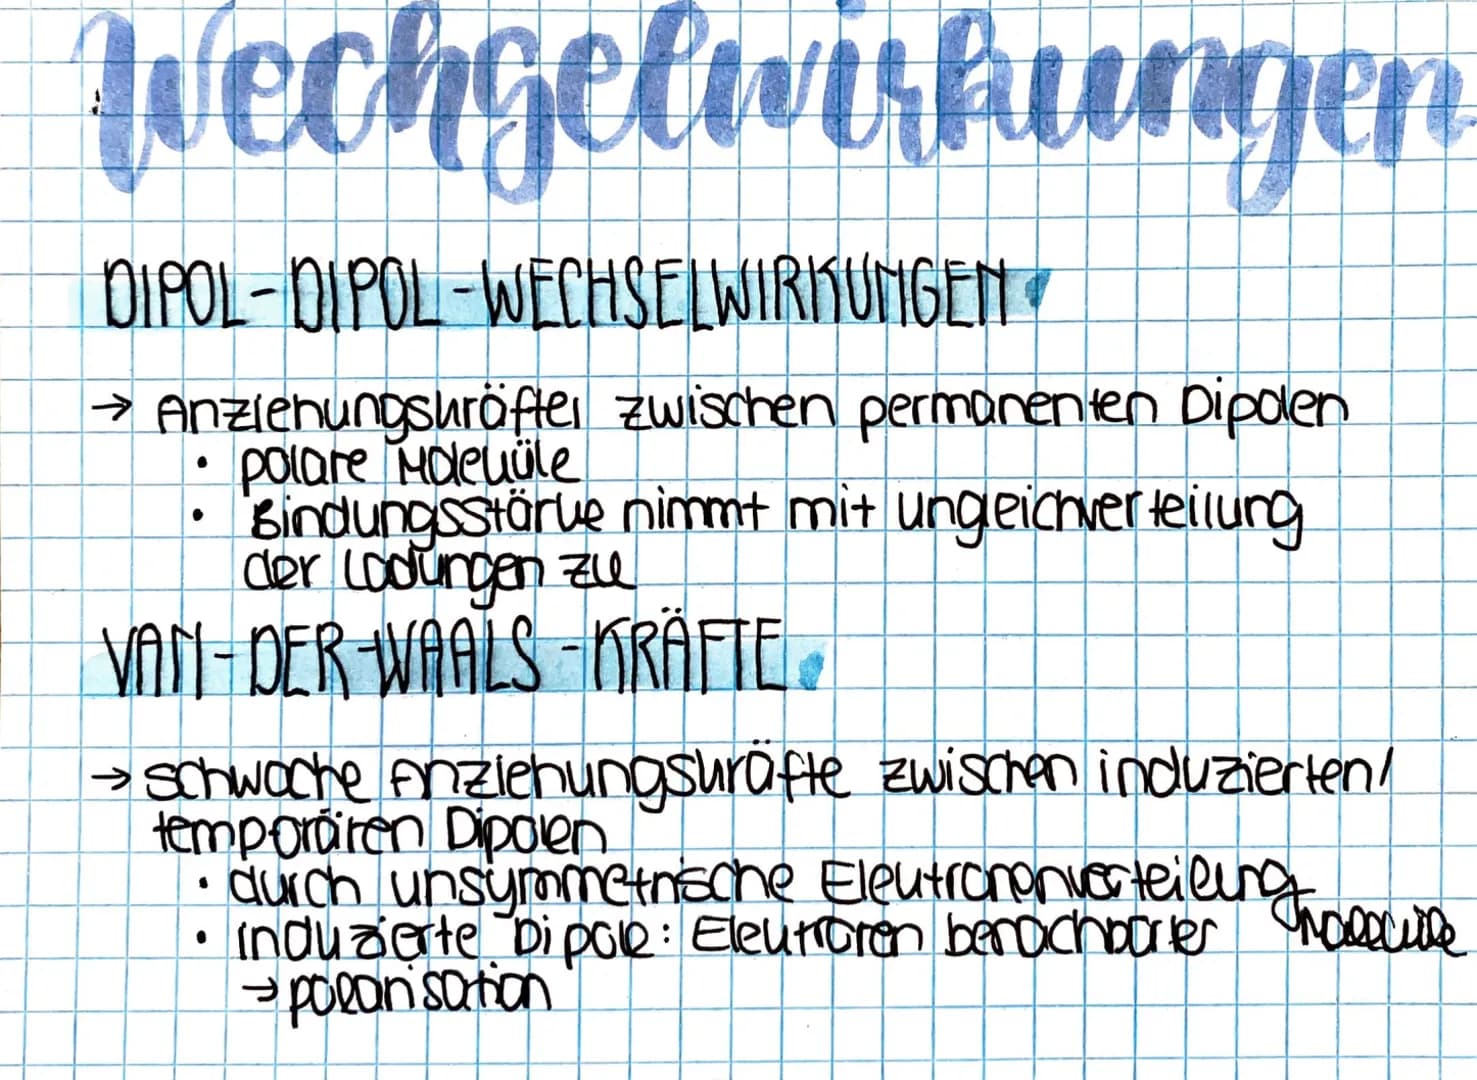 Wechselwirkungen
DIPOL-DIPOL-WECHSELWIRKUNGEN
→ Anziehungskräfte zwischen permanenten Dipolen
• polare Moleküle
• Bindungsstärke nimmt mit ungleichverteilung
der Ladungen zu
VAN-DER-WAALS-KRÄFTE
→ schwache Anziehungskräfte zwischen induzierten/
temporären Dipolen
• durch unsymmetrische Elektronenverteilung
• induzierte Dipole: Elektronen benachbarter Moleküle
→ polarisation